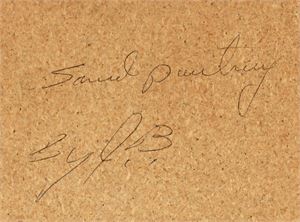 Sand painting
By J.B.